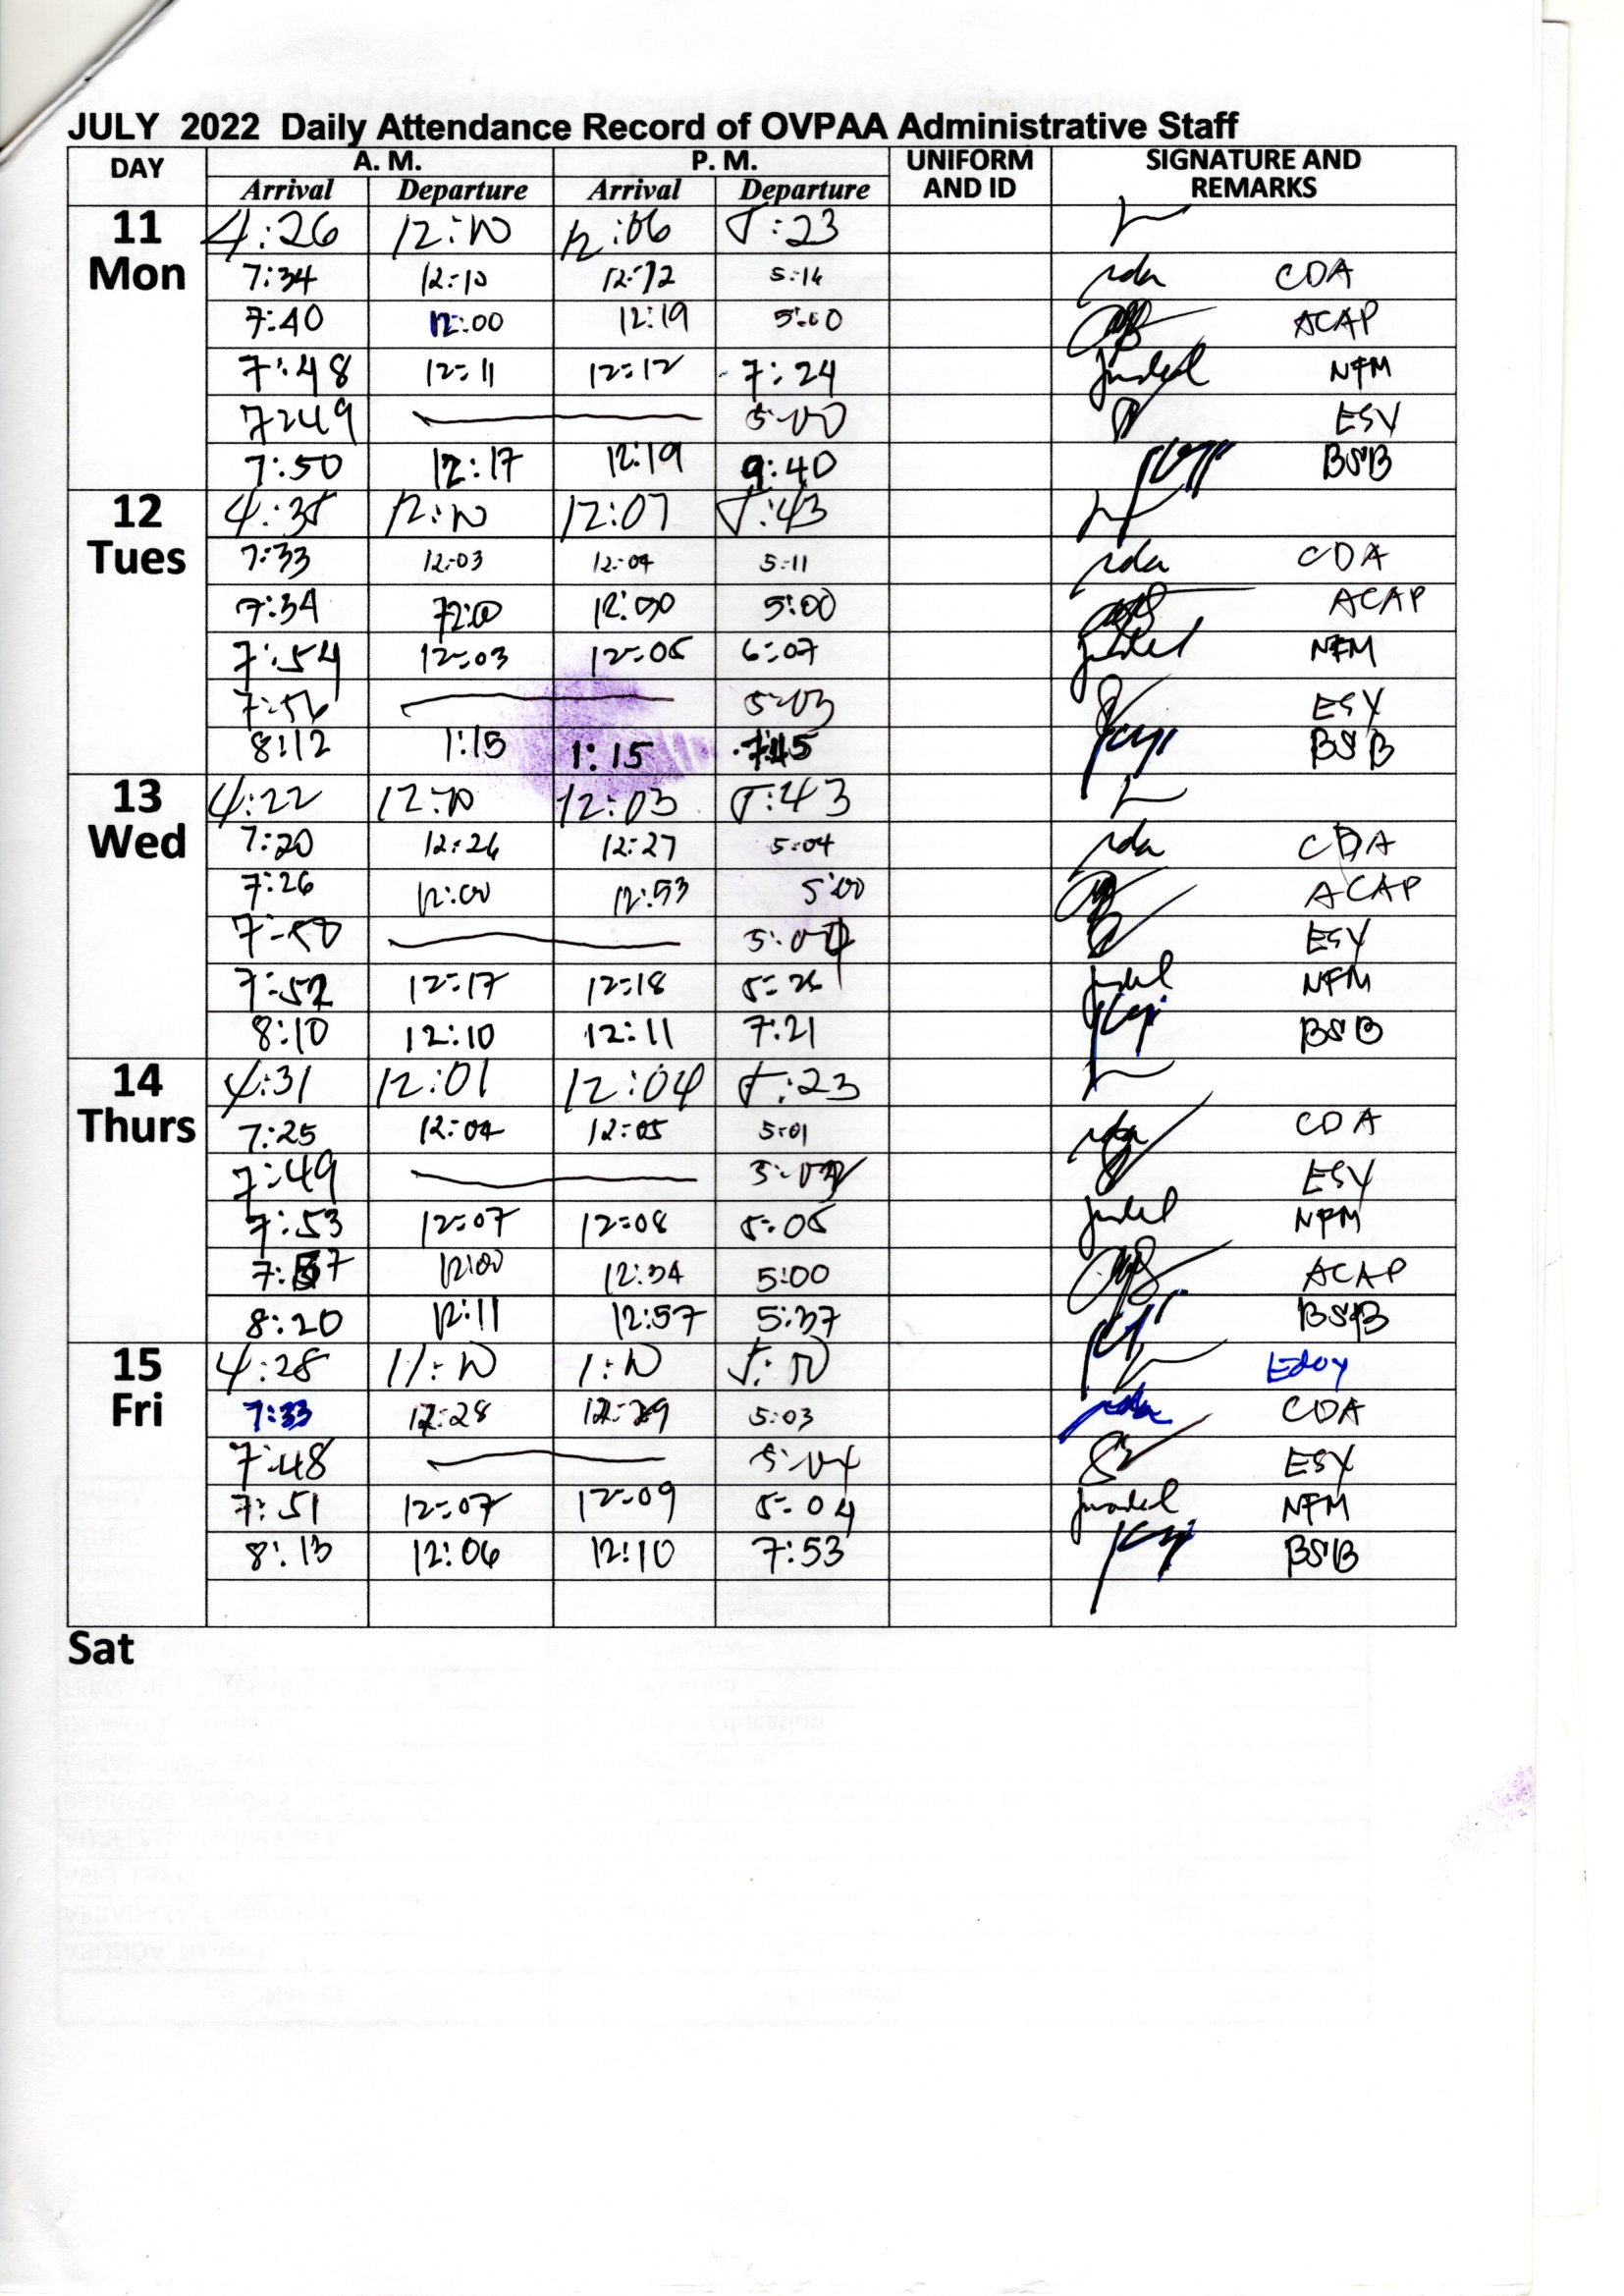 JULY 2022 Daily Attendance Record of OVPAA Administrative Staff
DAY A. M. P. M. UNIFORM AND ID SIGNATURE AND REMARKS
Arrival Departure Arrival Departure
11 Mon
4:26 12:10 12:06 5:23
7:34 12:10 12:12 5:14 CDA
7:40 12:00 12:19 5:00 ACAP
7:48 12:11 12:12 7:24 NFM
7:49 5:00 ESY
7:50 12:17 12:19 9:40 BSB
12 Tues
4:35 12:10 12:07 5:43
7:33 12:03 12:04 5:11 CDA
7:34 12:00 12:30 5:00 ACAP
7:54 12:03 12:05 6:07 NFM
7:56 5:03 ESY
8:12 1:15 1:15 7:45 BSB
13 Wed
4:22 12:10 12:03 5:43
7:20 12:26 12:27 5:04 CDA
7:26 12:00 12:53 5:00 ACAP
7:50 5:04 ESY
7:52 12:17 12:18 5:26 NFM
8:10 12:10 12:11 7:21 BSB
14 Thurs
4:31 12:01 12:04 5:23
7:25 12:04 12:05 5:01 CDA
7:49 ESY
7:53 12:07 12:08 5:05 NFM
7:57 12:00 12:34 5:00 ACAP
8:20 12:11 12:57 5:37 BSB
15 Fri
4:28 11:10 1:10 5:10 Edoy
7:33 12:28 12:29 5:03 CDA
7:48 5:04 ESY
7:51 12:07 12:09 5:04 NFM
8:13 12:06 12:10 7:53 BSB
Sat